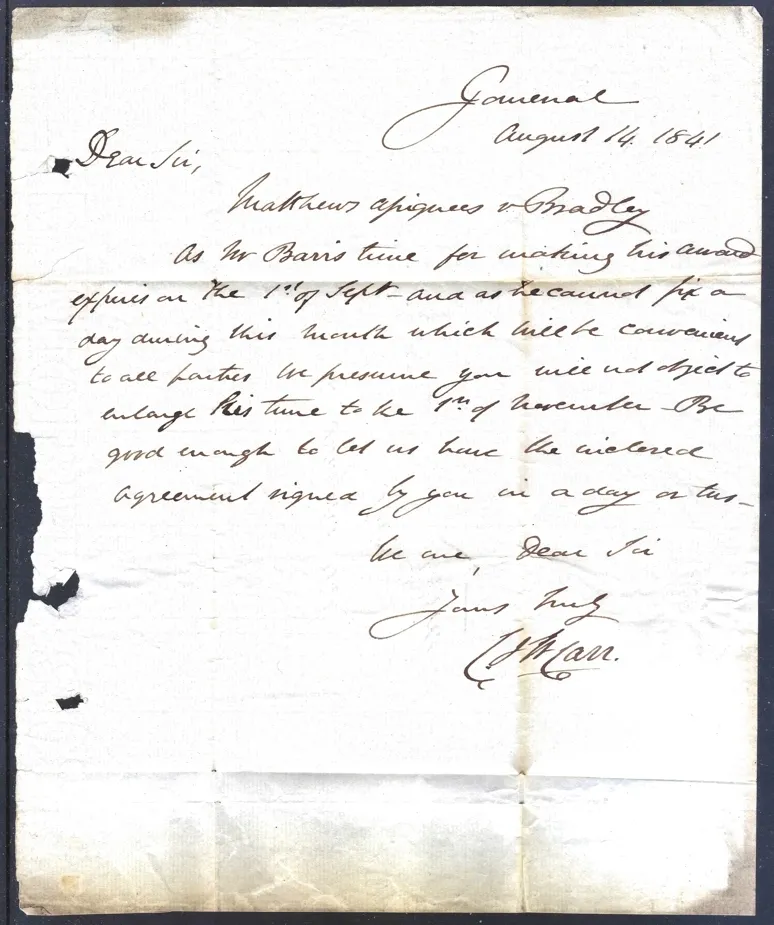 Gomersal
August 14. 1841
Dear Sir,
Matthews assignees v Bradley
As Mr Barr's time for making his award
expires on the 1st of Sept - and as he cannot fix a
day during this month which will be convenient
to all parties We presume you will not object to
enlarge this time to the 1st of November - Be
good enough to let us have the inclosed
agreement signed by you in a day or two -
We are, Dear Sir
Yours truly
Carr.